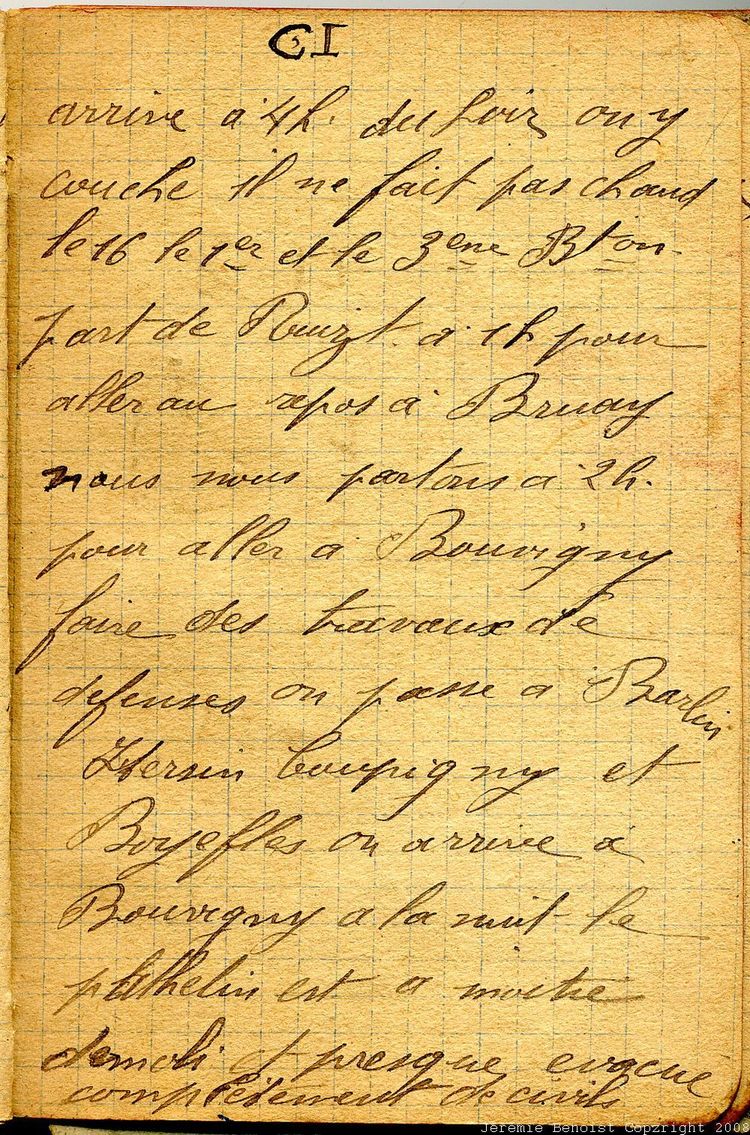 CI
arrive a 4h. du soir on y
couche il ne fait pas chaud
le 16 le 1er et le 3ème Bton
part de Ruizt. a 1h pour
aller au repos a Bruay
nous nous partons a 2h.
pour aller a Bouvigny
faire des travaux de
defenses on passe a Barlin
Hersin Coupigny et
Boyefles on arrive a
Bouvigny a la nuit le
est a moitie
demoli et presque evacué
complètement de civils
Jeremie Benoist Copzright 2008